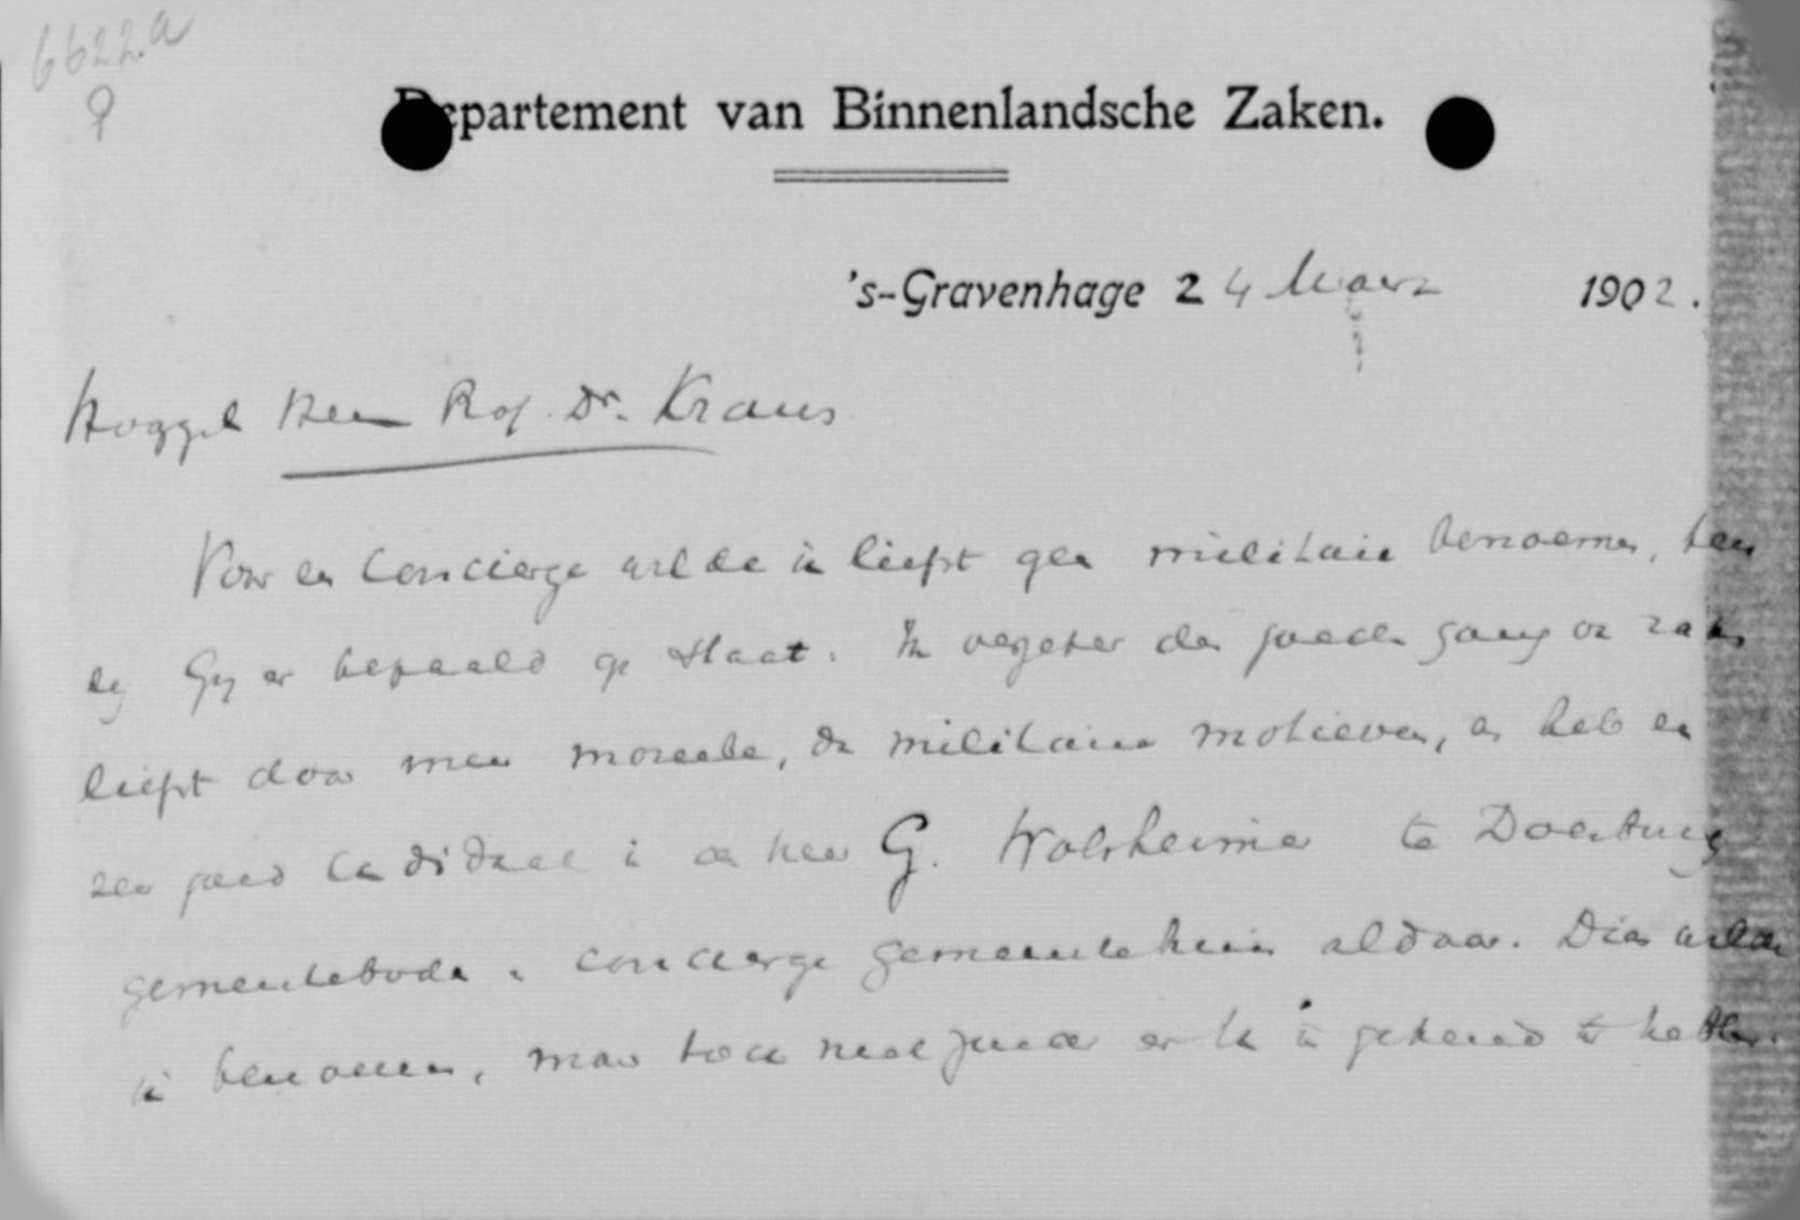 6622.a
Departement van Binnenlandsche Zaken.
's-Gravenhage 24 Maart 1902.
Hooggel Heer Prof. Dr. Kraus
Voor en concierge wilde ik liefst geen militair benoemen, ten
zij Gij er bepaald op staat. Ik verzeker den goeden gang van zaken
liefst door meer moreele, dan militaire motieven, en heb en
zeer goed candidaat in den heer G. Wolsheimer te Doesburg
gemeentebode en concierge gemeentehuis aldaar. Dien wilde
ik benoemen, maar toch niet zonder er U in gekend te hebben.